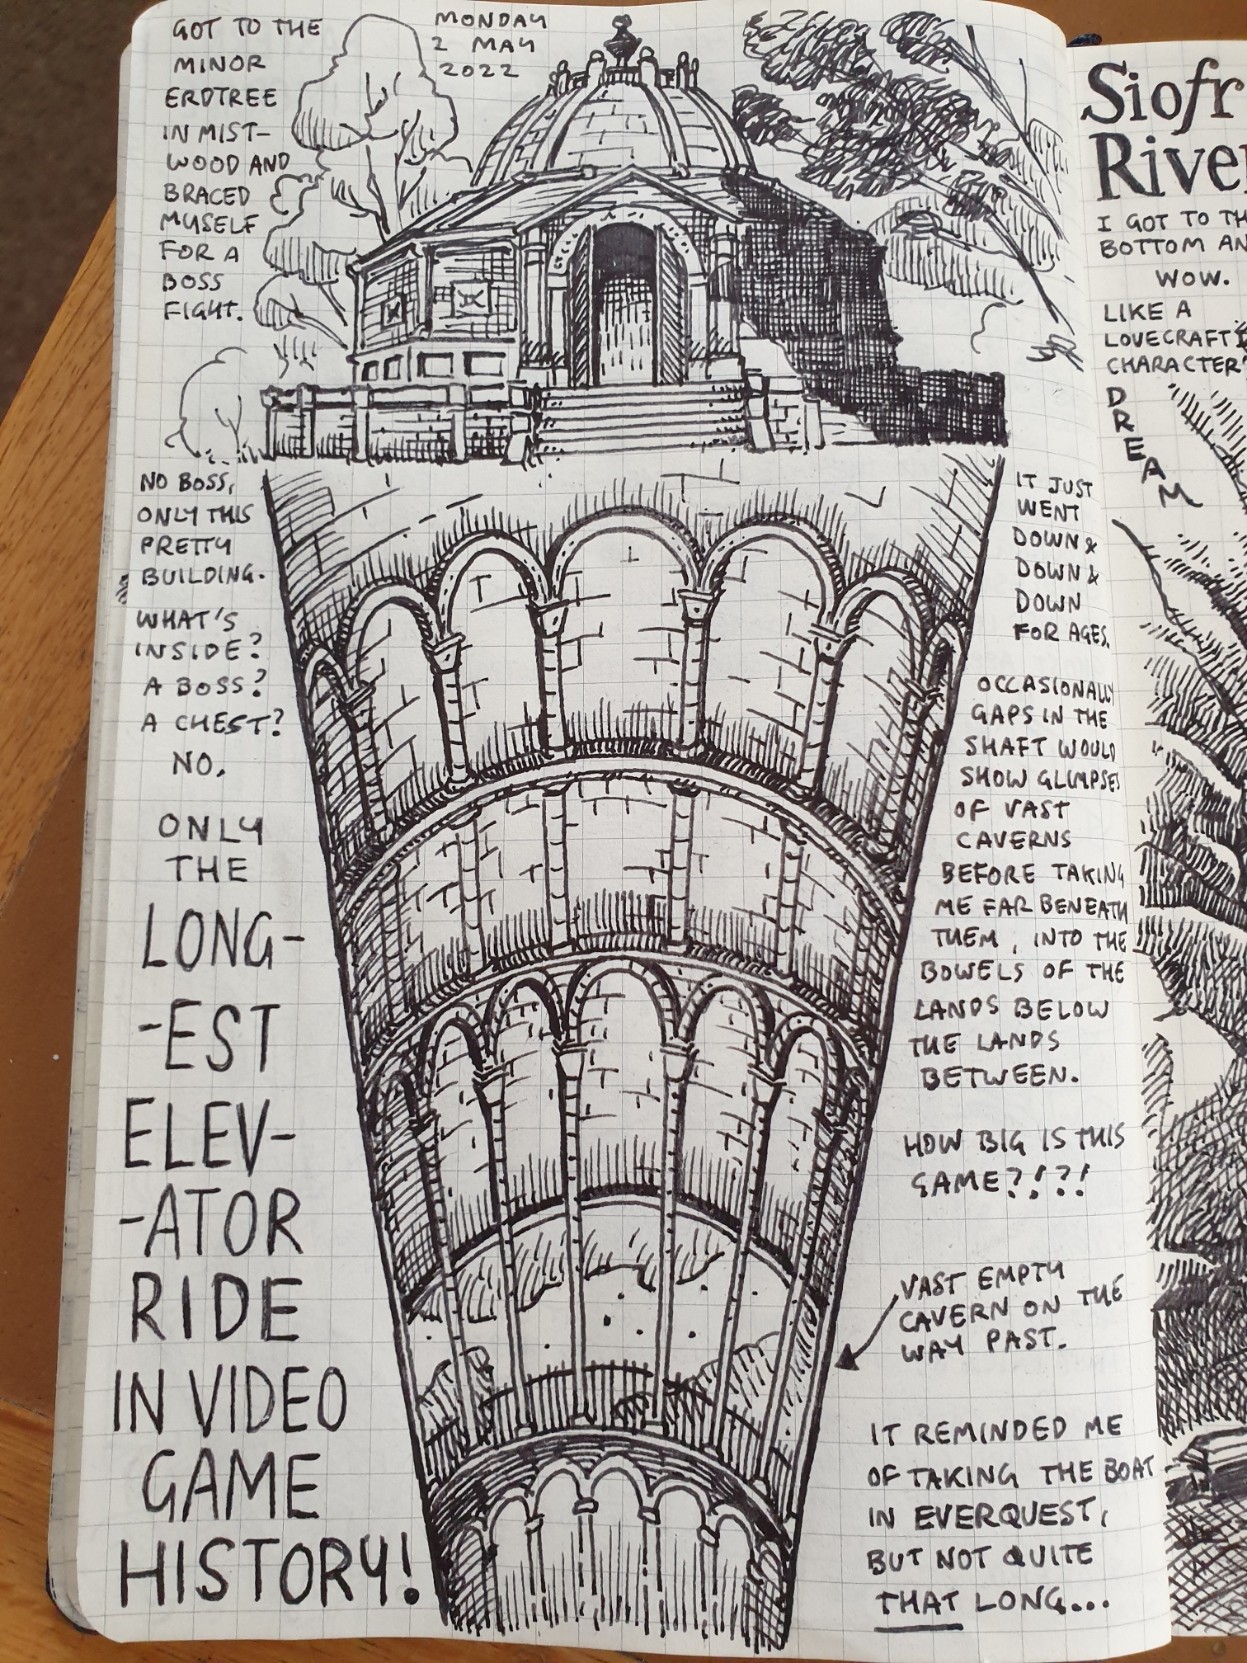 GOT TO THE
MINOR
ERDTREE
IN MIST-
WOOD AND
BRACED
MYSELF
FOR A
BOSS
FIGHT.
MONDAY
2 MAY
2022
NO BOSS,
ONLY THIS
PRETTY
BUILDING.
WHAT'S
INSIDE?
A BOSS?
A CHEST?
NO.
ONLY
THE
LONG-
-EST
ELEV-
-ATOR
RIDE
IN VIDEO
GAME
HISTORY!
IT JUST
WENT
DOWN &
DOWN &
DOWN
FOR AGES.
OCCASIONALLY
GAPS IN THE
SHAFT WOULD
SHOW GLIMPSES
OF VAST
CAVERNS
BEFORE TAKING
ME FAR BENEATH
THEM, INTO THE
BOWELS OF THE
LANDS BELOW
THE LANDS
BETWEEN.
HOW BIG IS THIS
GAME?!?!
VAST EMPTY
CAVERN ON THE
WAY PAST.
IT REMINDED ME
OF TAKING THE BOAT
IN EVERQUEST,
BUT NOT QUITE
THAT LONG...
Siofr
River
I GOT TO TH
BOTTOM AN
WOW.
LIKE A
LOVECRAFT
CHARACTER'
DREAM